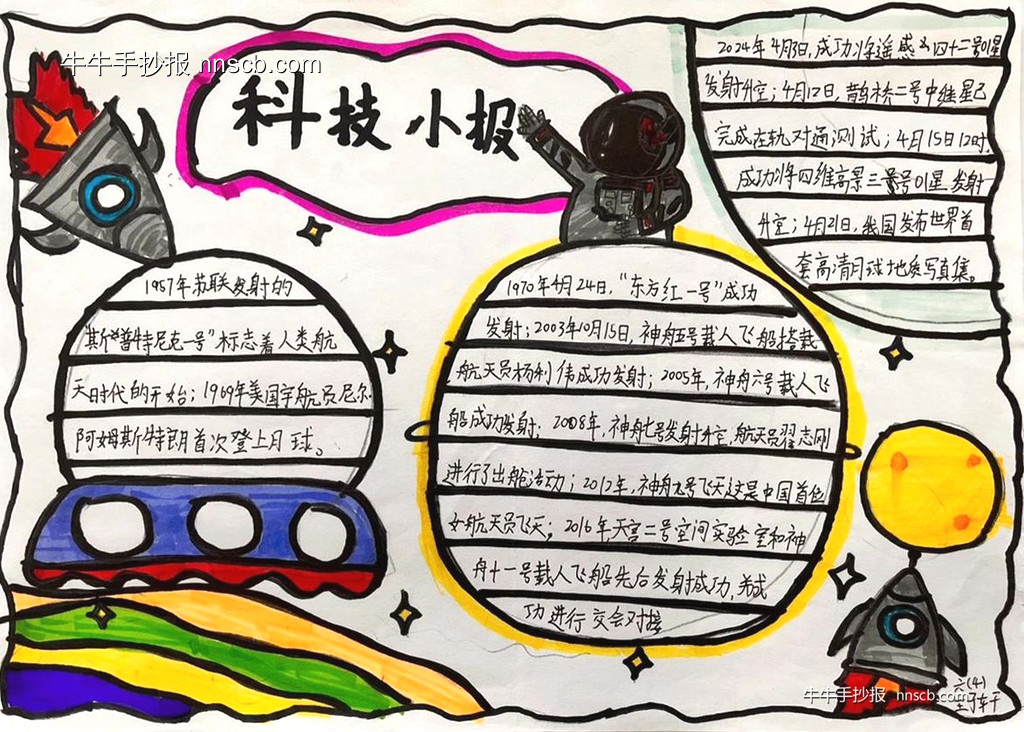 牛牛手抄报 nnscb.com
科技小报
2024年4月3日,成功将遥感四十二号01星
发射升空;4月12日,鹊桥二号中继星已
完成在轨对通测试;4月15日12时,
成功将四维高景三号01星发射
升空;4月21日,我国发布世界首
套高清月球地质写真集。
1957年苏联发射的
斯“普特尼克一号”标志着人类航
天日时代的开始;1969年美国宇航员尼尔
阿姆斯特朗首次登上月球。
1970年4月24日,“东方红一号”成功
发射;2003年10月15日,神舟五号载人飞船搭载
航天员杨利伟成功发射;2005年,神舟六号载人飞
船成功发射;2008年,神舟七号发射升空,航天员翟志刚
进行了出舱活动;2012年,神舟九号飞天这是中国首位
女航天员飞天;2016年,天宫二号空间实验室和神
舟十一号载人飞船先后发射成功,并成
功进行交会对接
牛牛手抄报 nnscb.com
六(4)